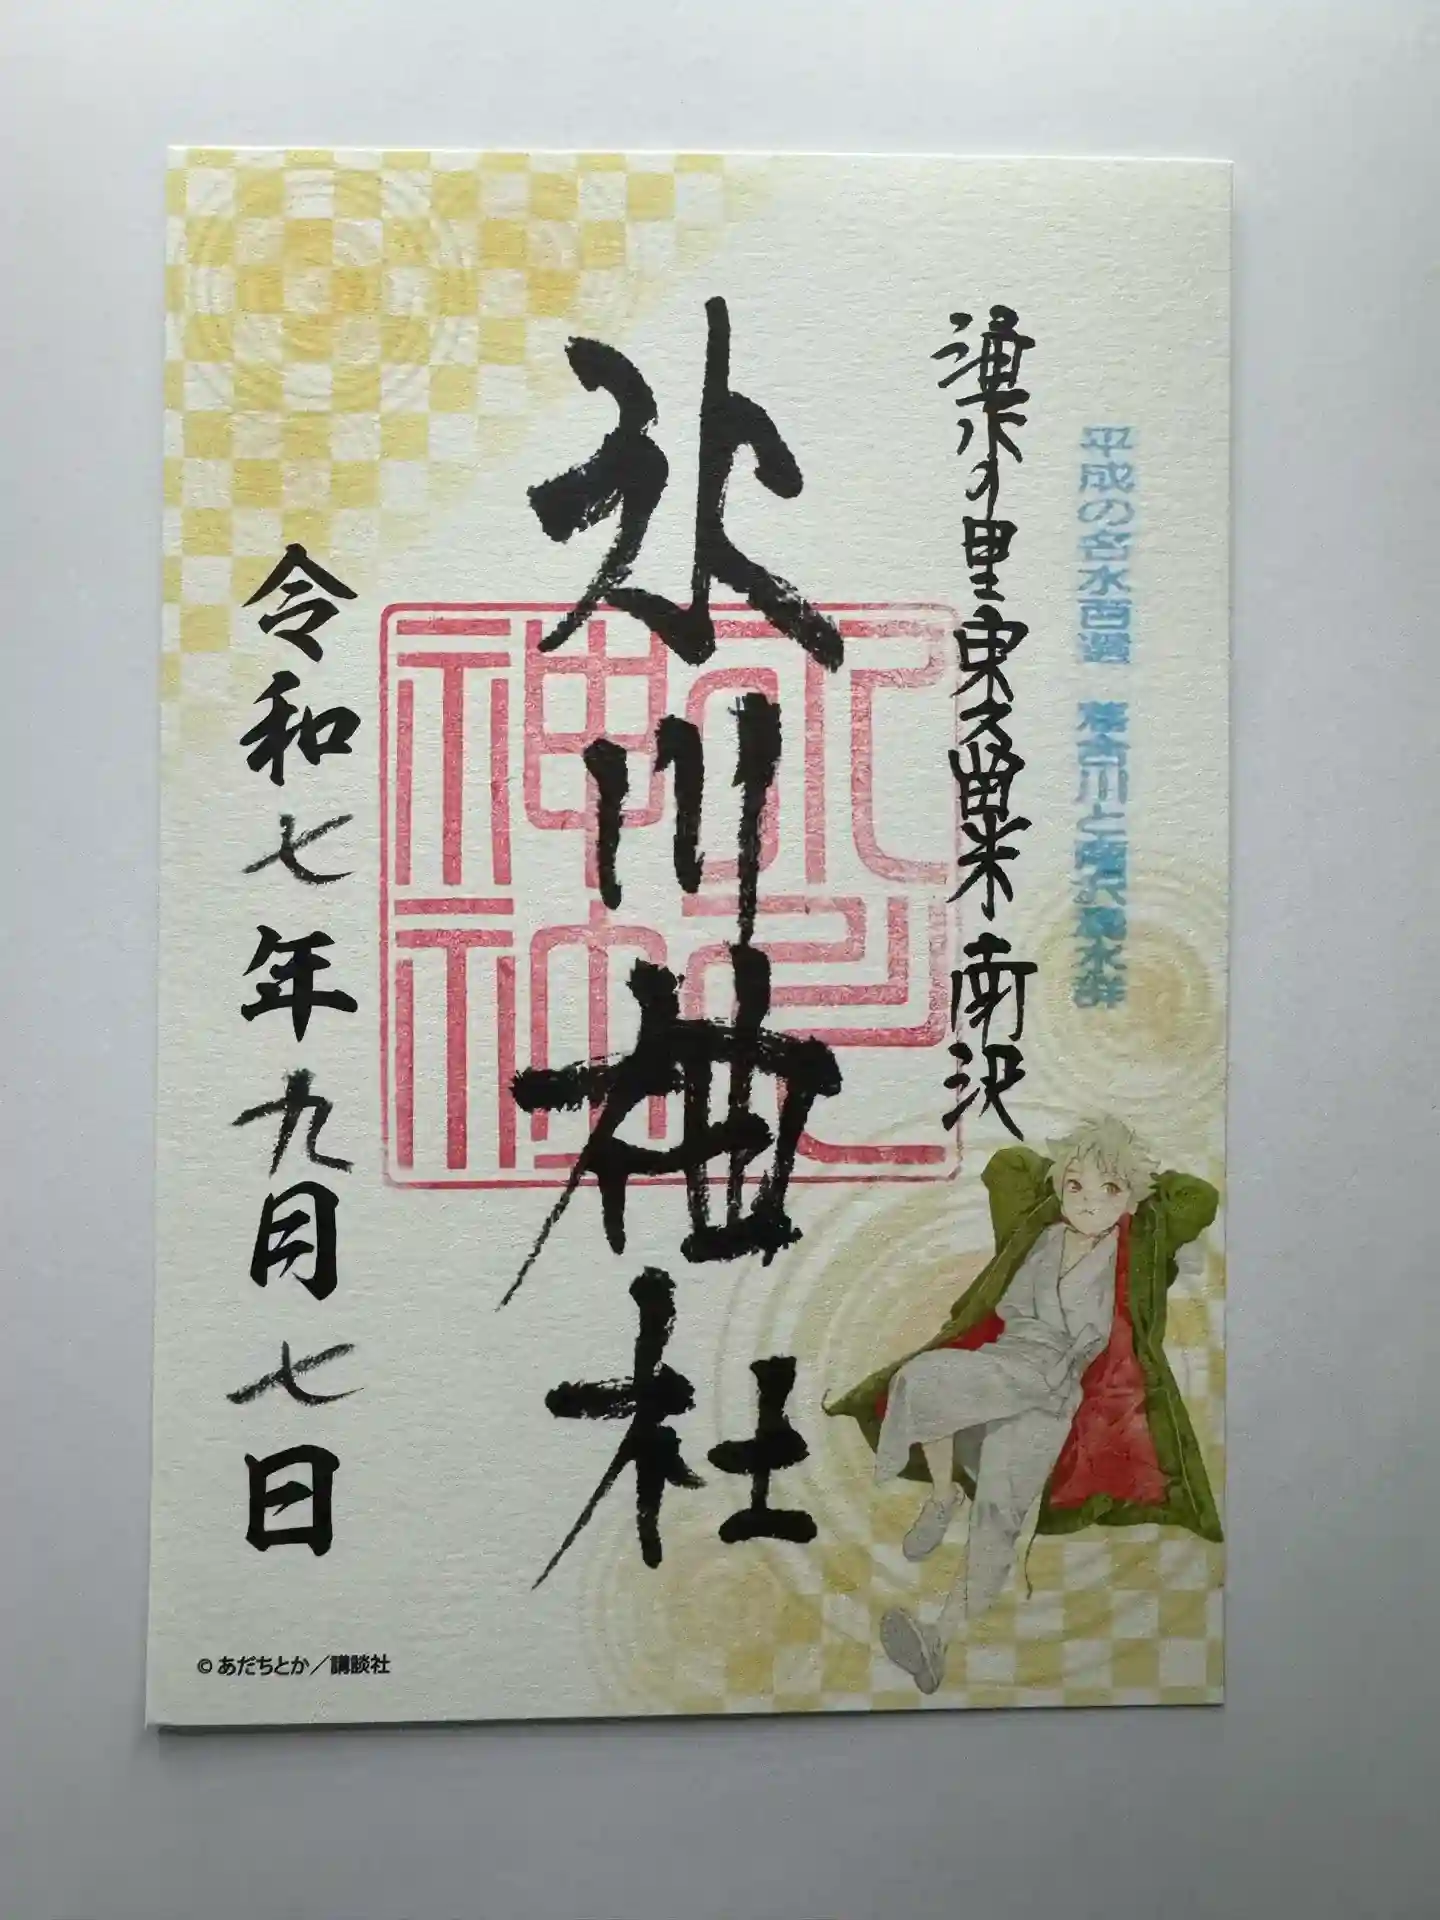 平成の名水百選 落合川と南沢湧水群
湧水の里東久留米南沢
氷川神社
令和七年九月七日
© あだちとか／講談社